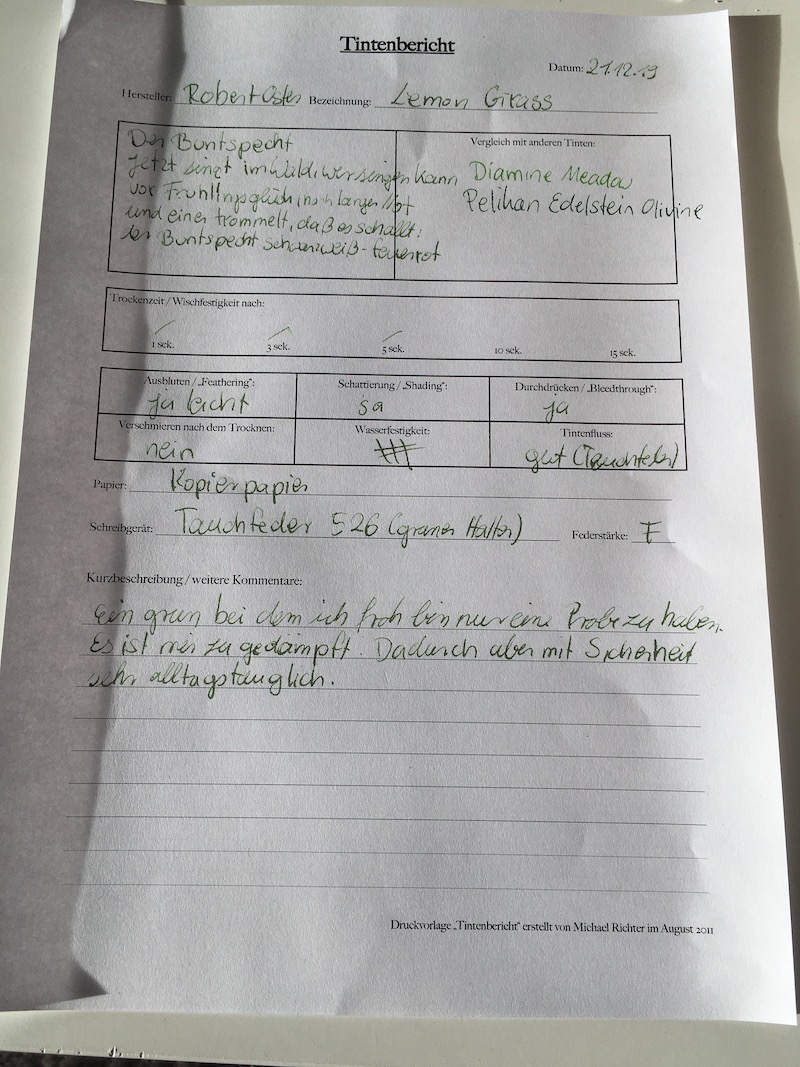 Tintenbericht
Datum: 21.12.19
Hersteller: Robert Oster Bezeichnung: Lemon Grass
Der Buntspecht
Jetzt singt im Wald, wer singen kann
vor Frühlingsglück, nach langer Not
und einer trommelt, daß es schallt:
der Buntspecht schwarzweiß-feuerrot
Vergleich mit anderen Tinten:
Diamine Meadow
Pelikan Edelstein Olivine
Trockenzeit / Wischfestigkeit nach:
1 sek. 3 sek. 5 sek. 10 sek. 15 sek.
Ausbluten / „Feathering“: Schattierung / „Shading“: Durchdrücken / „Bleedthrough“:
ja leicht ja ja
Verschmieren nach dem Trocknen: Wasserfestigkeit: Tintenfluss:
nein gut (Tauchfeder)
Papier: Kopierpapier
Schreibgerät: Tauchfeder 526 (grüner Halter) Federstärke: F
Kurzbeschreibung / weitere Kommentare:
Ein grün bei dem ich froh bin nur eine Probe zu haben.
Es ist mir zu gedämpft. Dadurch aber mit Sicherheit
sehr alltagstauglich.
Druckvorlage „Tintenbericht“ erstellt von Michael Richter im August 2011